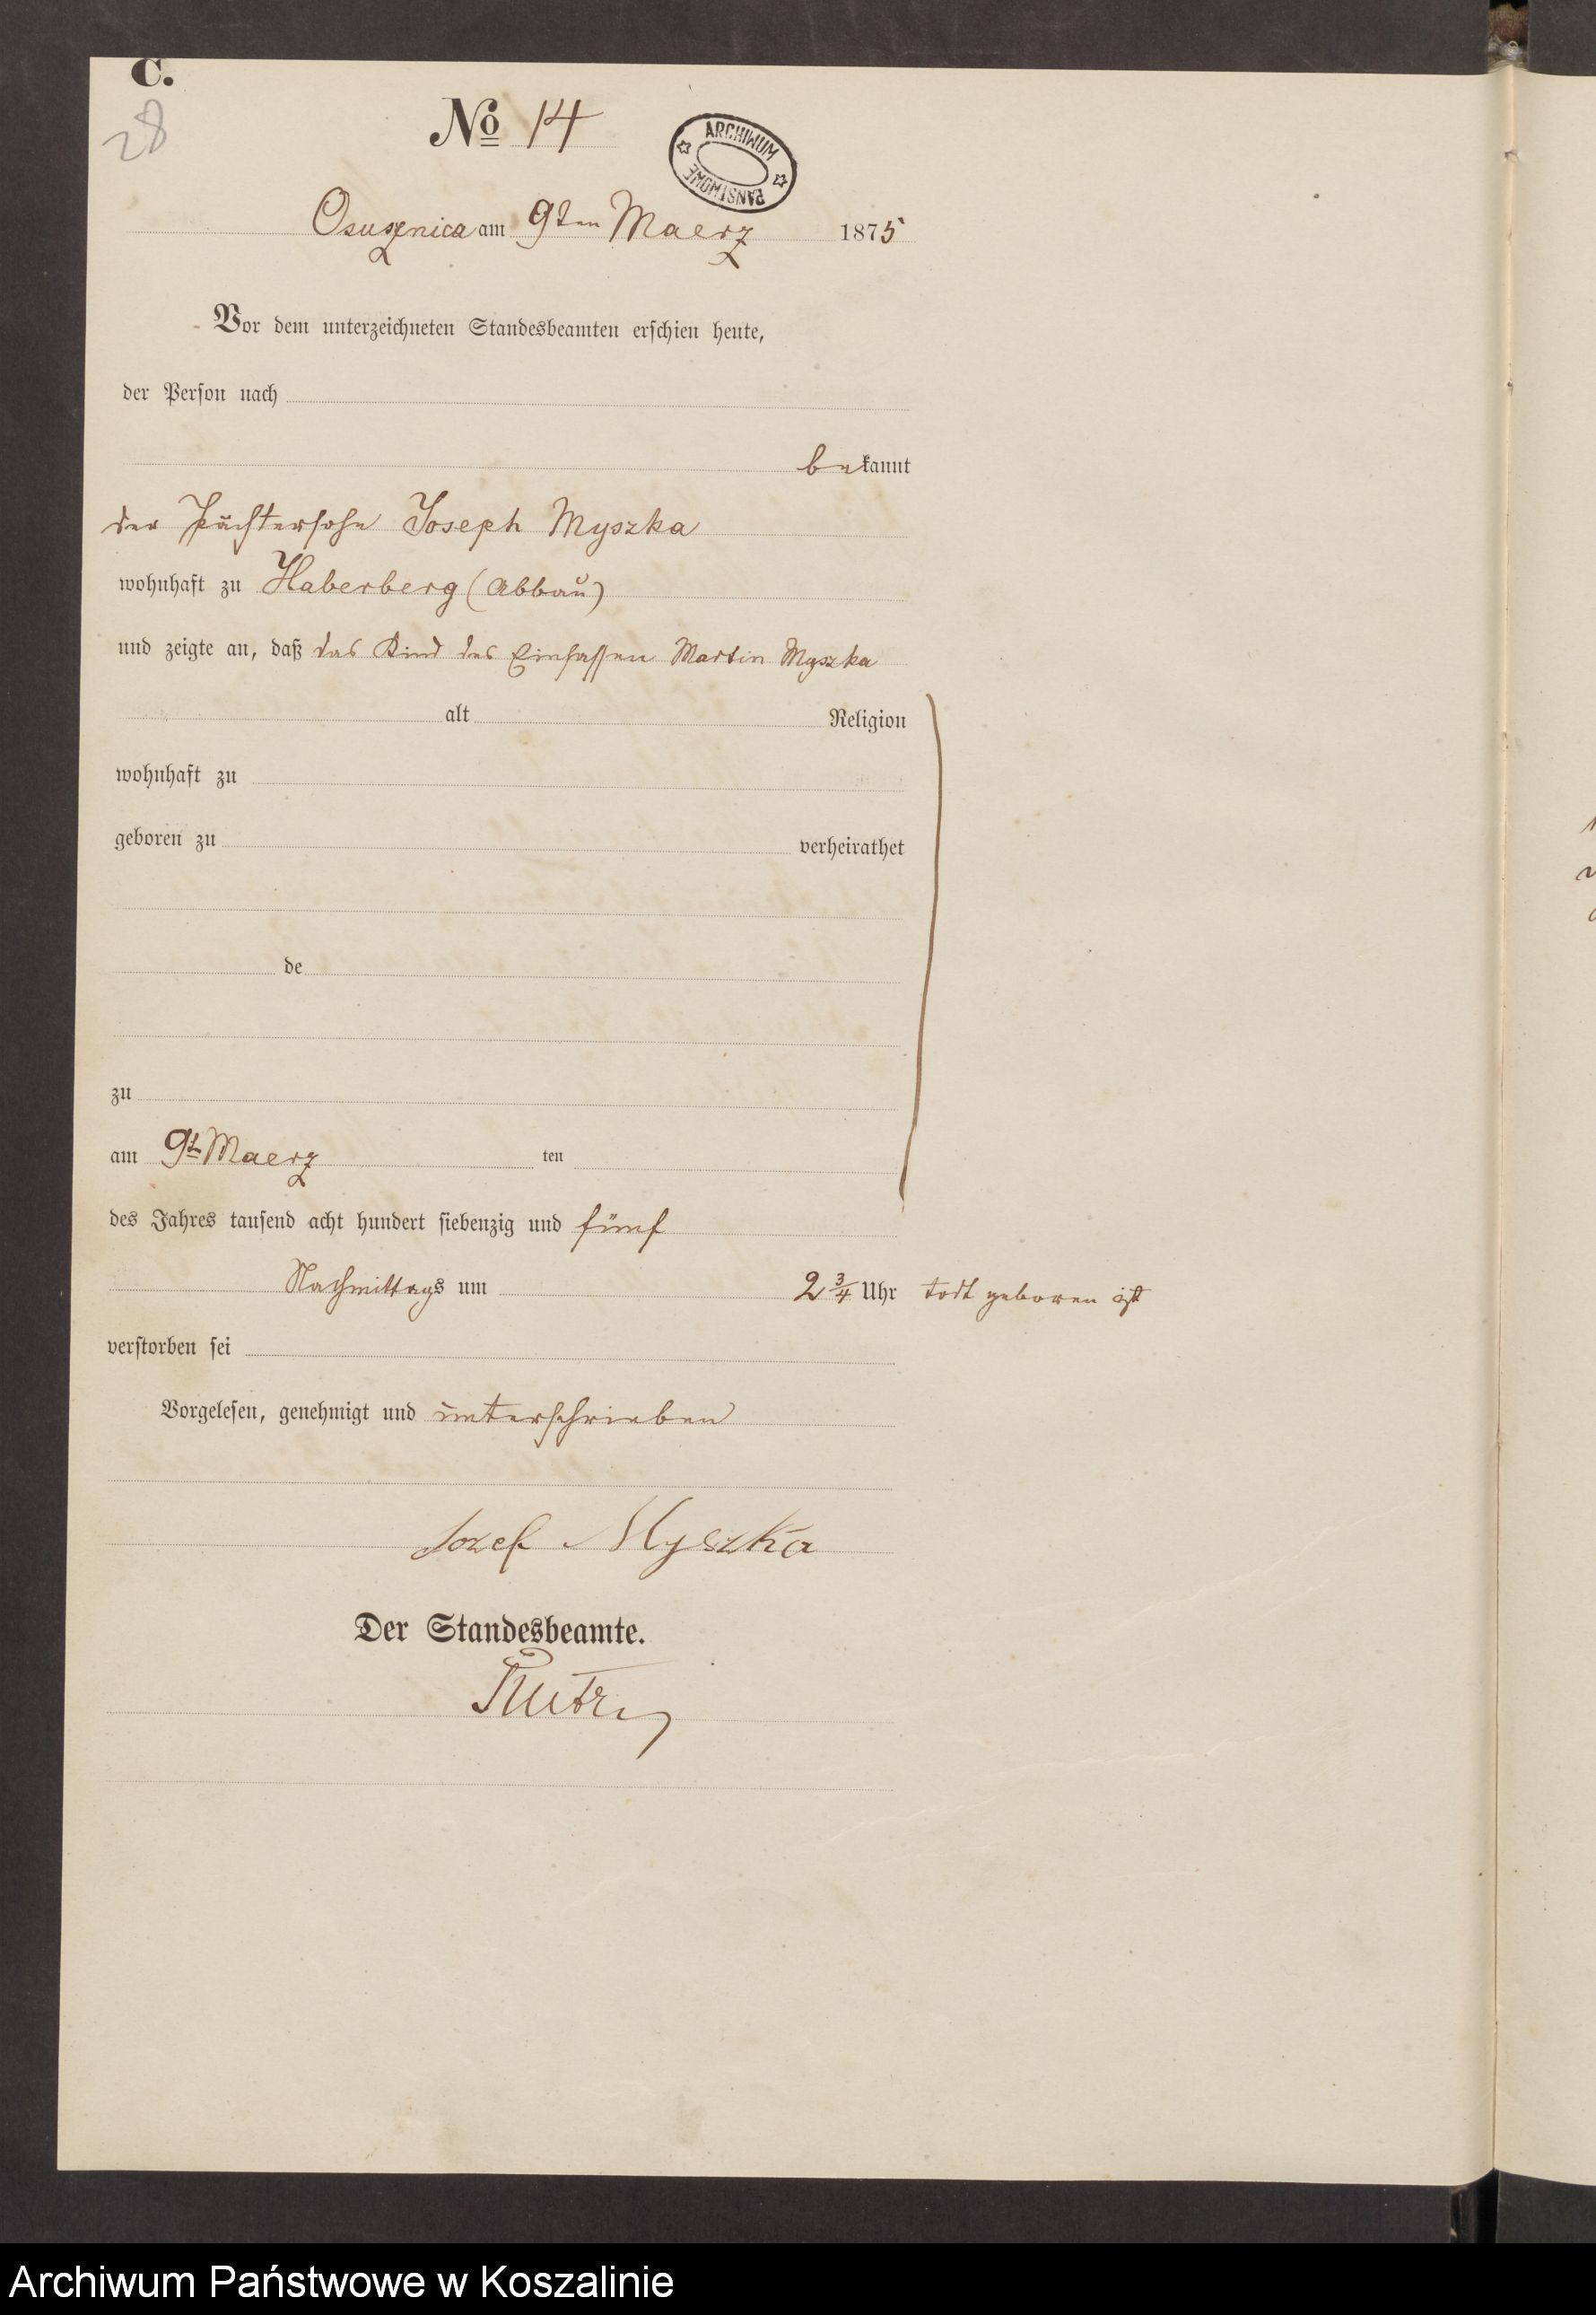 C.
28
No 14
ARCHIWUM PAŃSTWOWE
Osusznica am 9ten Maerz 1875
Vor dem unterzeichneten Standesbeamten erschien heute,
der Person nach
bekannt
der Pächtersohn Joseph Myszka
wohnhaft zu Haberberg (Abbau)
und zeigte an, daß das Kind des Einsassen Martin Myszka
alt Religion
wohnhaft zu
geboren zu verheirathet
de
zu
am 9t Maerz ten
des Jahres tausend acht hundert siebenzig und fünf
Nachmittags um 2 3/4 Uhr todt geboren ist
verstorben sei
Vorgelesen, genehmigt und unterschrieben
Jozef Myszka
Der Standesbeamte.
Archiwum Państwowe w Koszalinie